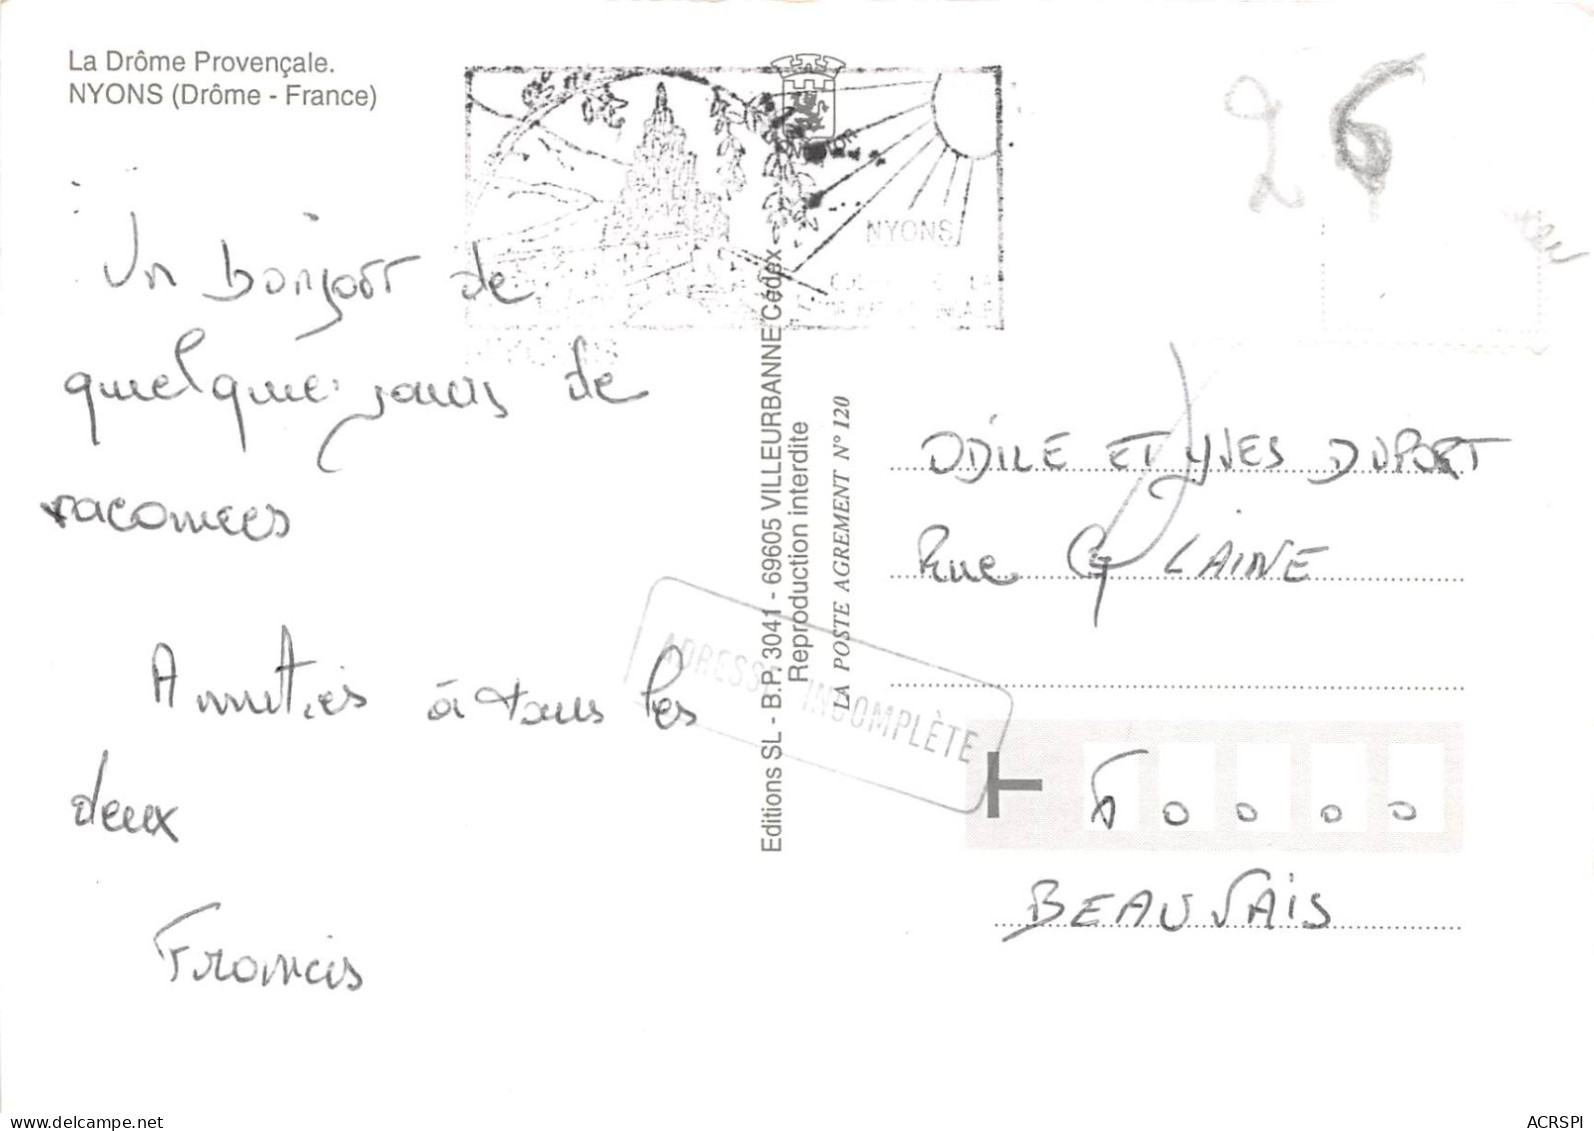 La Drôme Provençale.
NYONS (Drôme - France)
NYONS
26
Un bonjour de
quelque jours de
vacances
Amitiés à tous les
deux
Francis
Editions SL - B.P. 3041 - 69605 VILLEURBANNE Cédex
Reproduction interdite
LA POSTE AGREMENT N° 120
ADRESSE INCOMPLÈTE
ODILE ET YVES DUPORT
Rue G LAINE
60000
BEAUVAIS
www.delcampe.net
ACRSPI